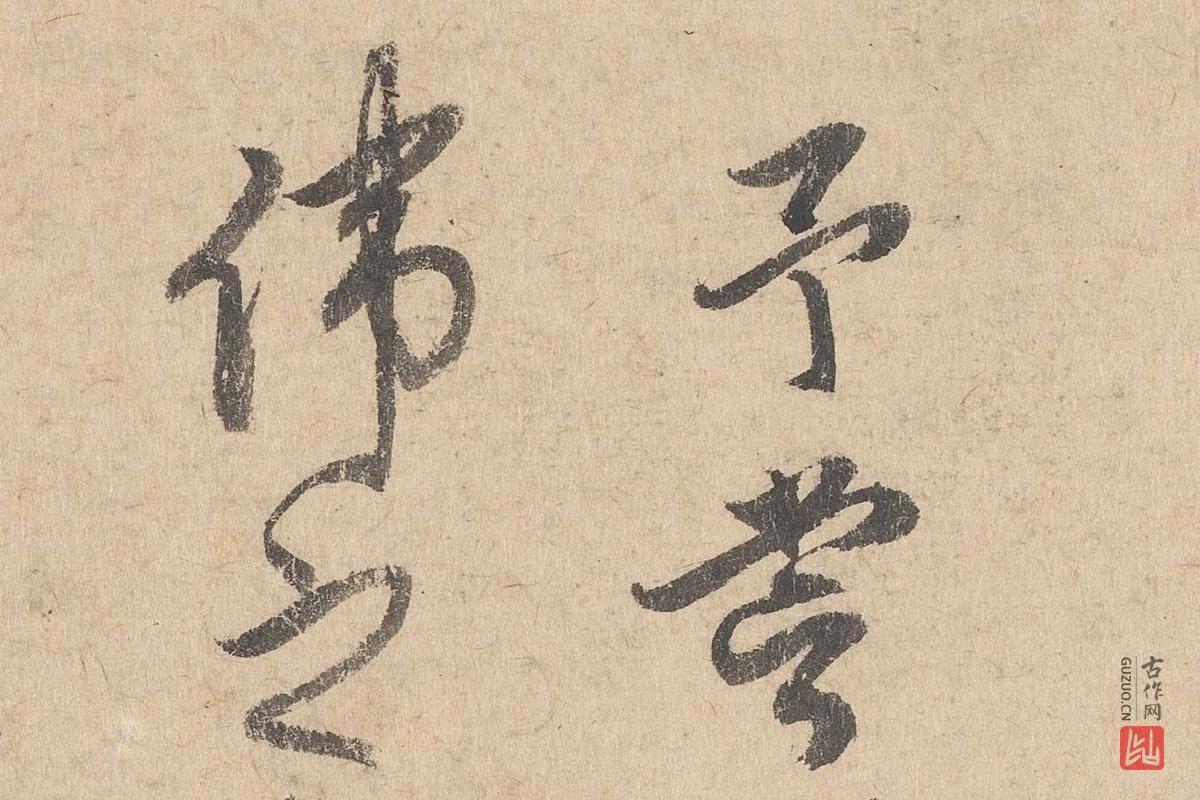 予嘗
偉之
古作网
GUZUO.CN